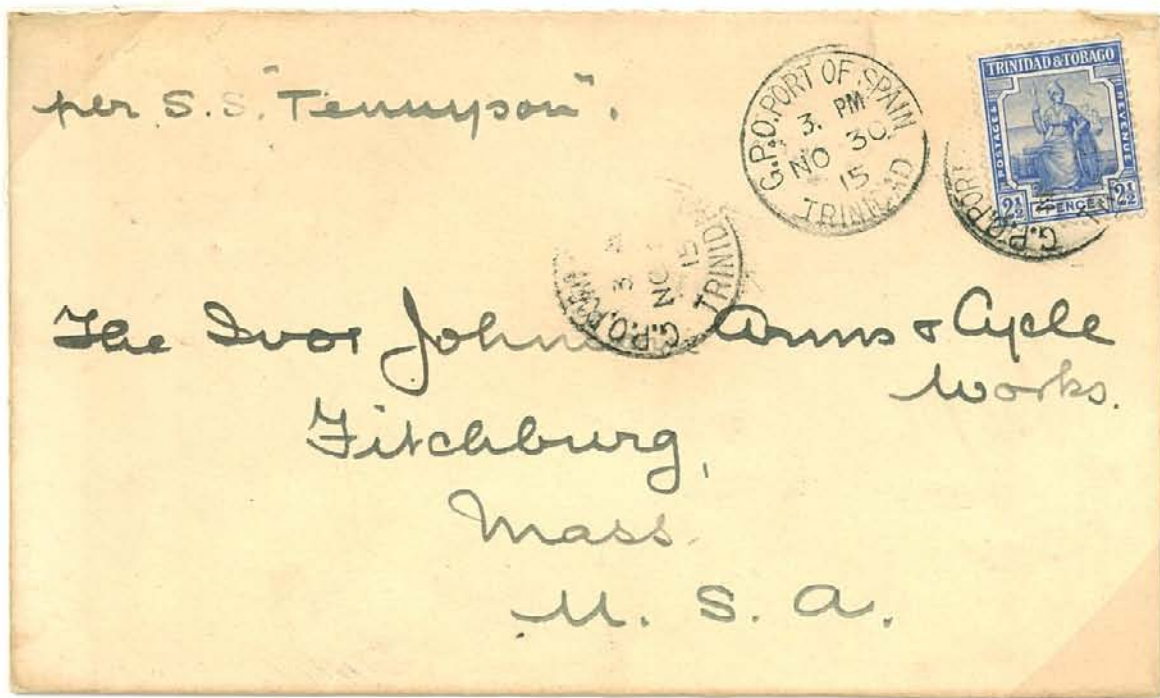 per S.S. "Tennyson".
G.P.O. PORT OF SPAIN
3. PM
NO 30
15
TRINIDAD
TRINIDAD & TOBAGO
POSTAGE & REVENUE
2½ PENCE 2½
G.P.O. PORT
G.P.O. PORT
3
NO
15
TRINIDAD
The Iver Johnson Arms & Cycle
Works.
Fitchburg,
Mass
U. S. A.